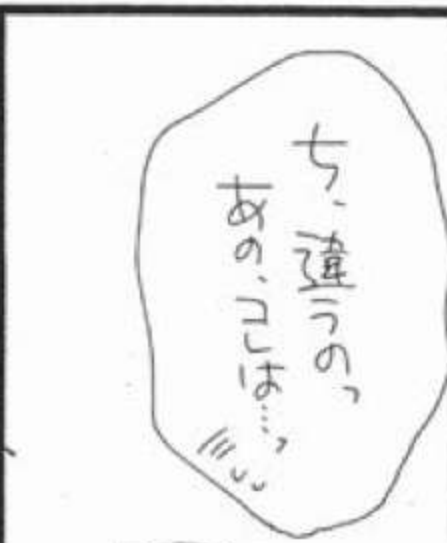 ち、違うのっ
あの、コレは…っ